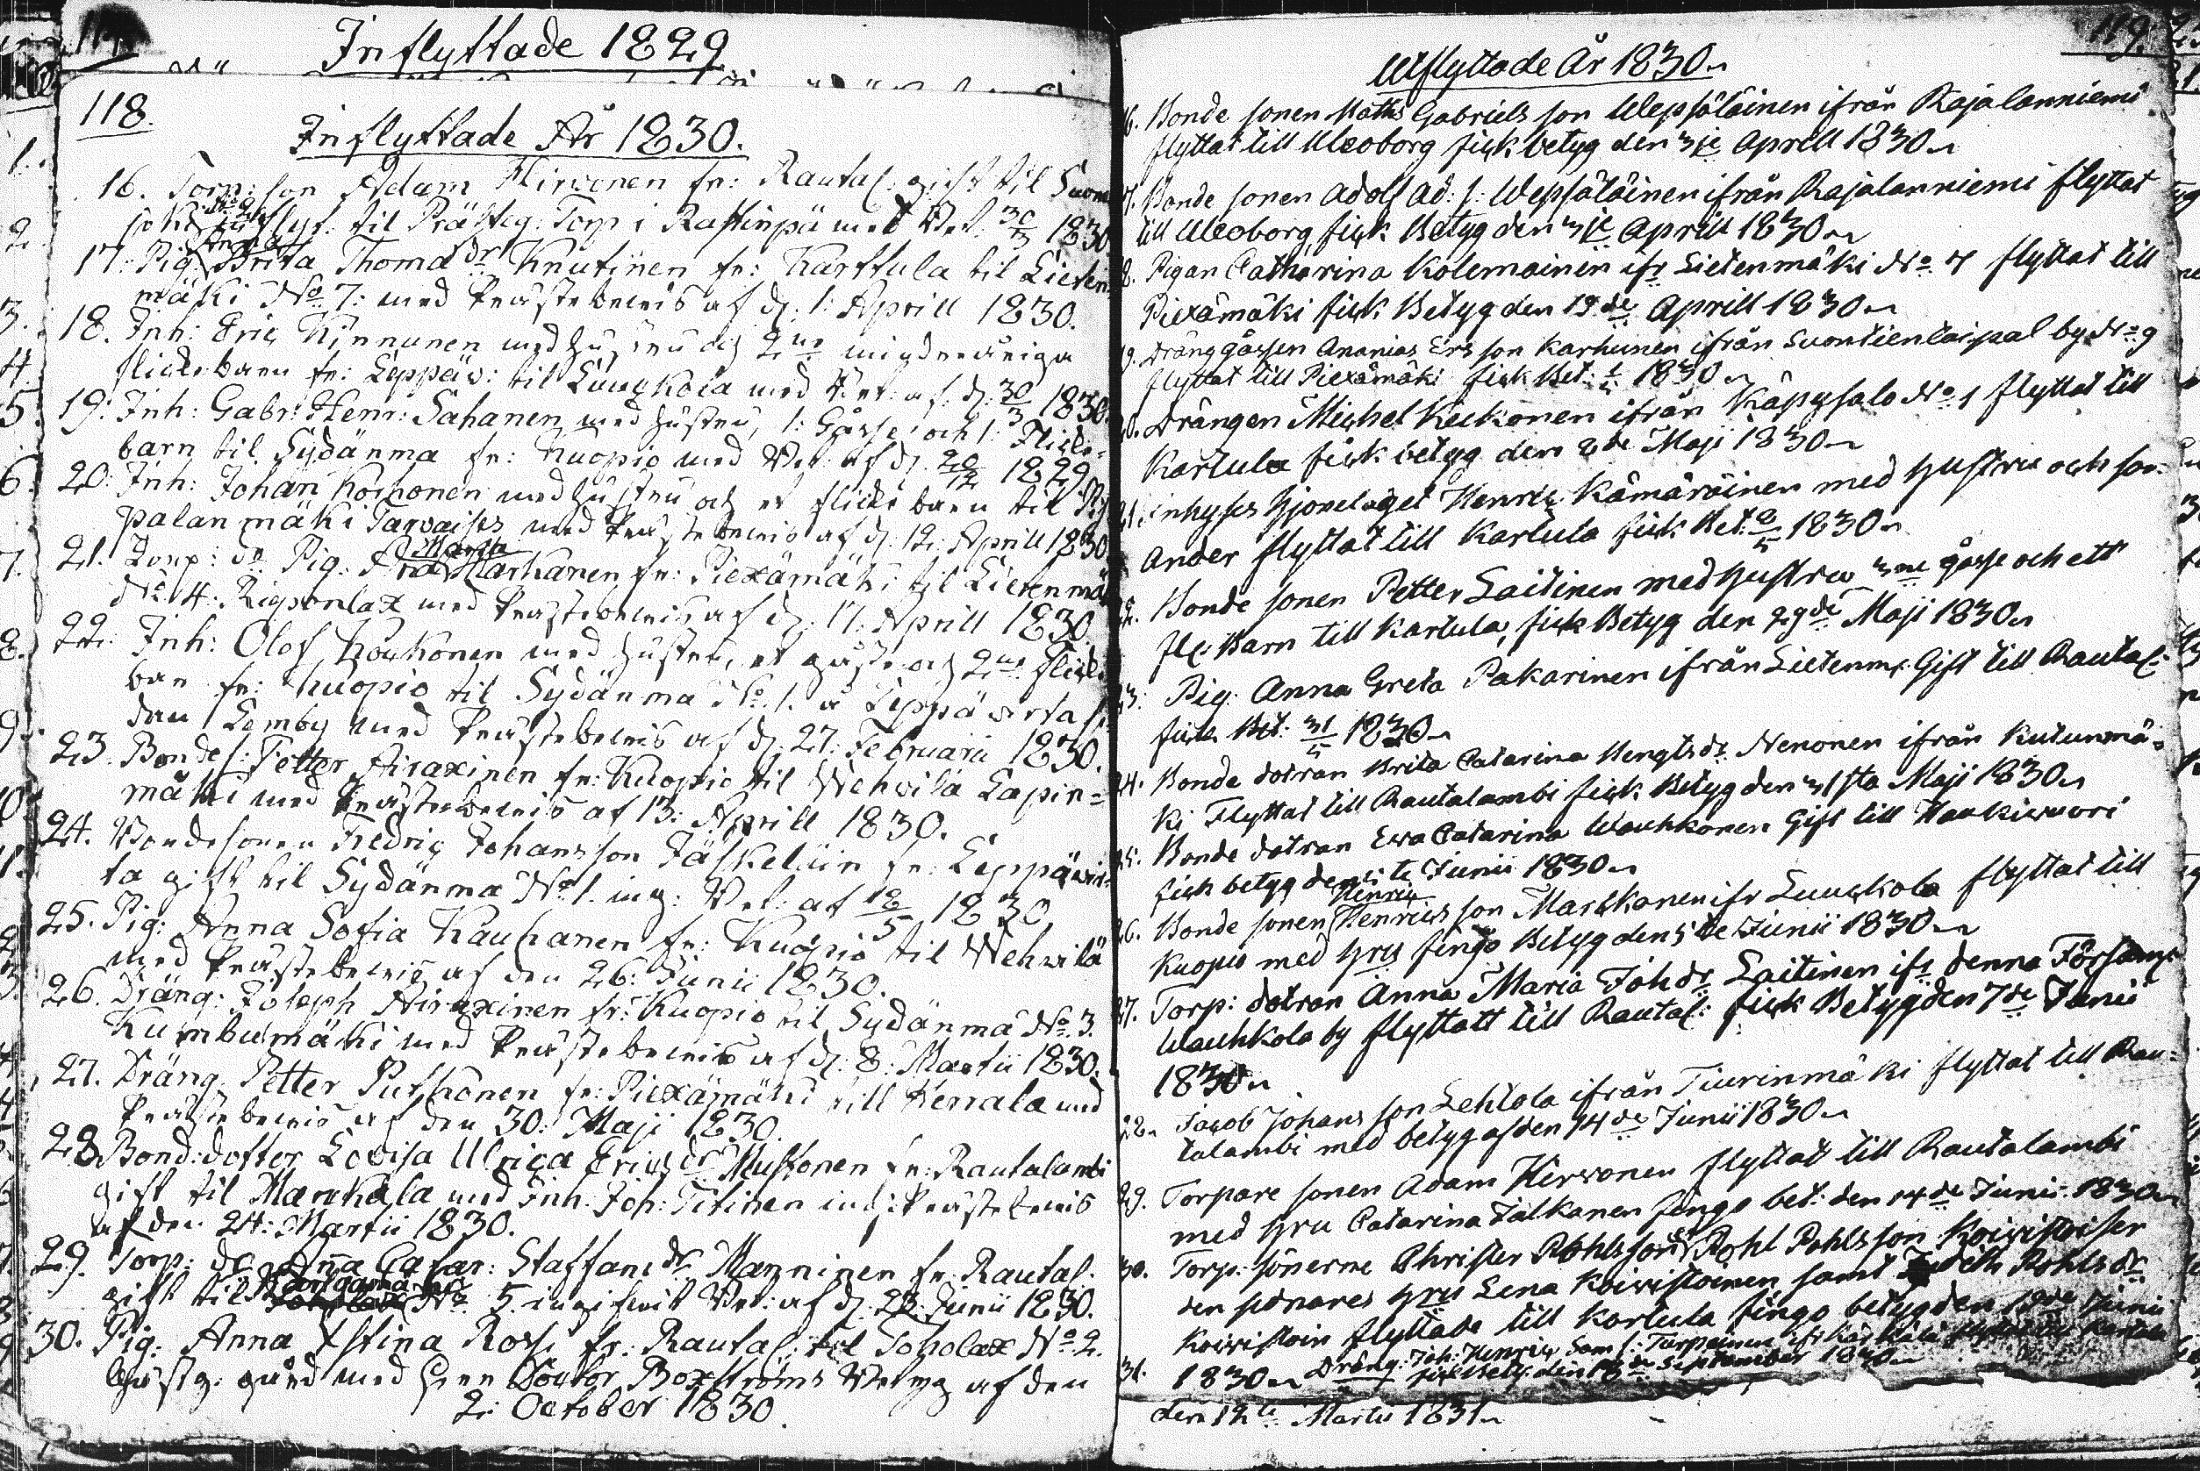 Inflyttade 1829
118.
Inflyttade År 1830.
16. Torp: son Adam Hirvonen fr: Rautal: gift til Suon
flyt. til Prästeg: Torp i Rastinpä med Bet. 30/3 1830
17. Pig: Brita Thomæ dr Knutinen fr: Karttula til Lieten
mäki No 7: med Prästebewis af d: 1: Aprill 1830.
18. Inh: Eric Kinnunen med hustru och 2ne minderåriga
flickebarn fr: Leppäv: til Luukkola med Bet: af d: 30/3 1830.
19. Inh: Gabr: Henr: Sahanen med hustru, 1: Gåsse och 1: Flicke-
barn til Sydänma fr: Kuopio med Bet: af d: 1829
20: Inh: Johan Koinonen med hustru och et flicke barn til
palanmäki Tarvaisis med Prästebewis af d: 12: Aprill 1830
21. Torp: dr Pig: Maria Markanen fr: Piexämäki til Lietenmä
No 4: Riponlax med Prästebewis af d: 17: Aprill 1830.
22. Inh: Olof Koukonen med hustru, et gåsse och 2ne flick
barn fr: Kuopio til Sydänma No 1. a Leppävirta
dan Lemby med Prästebewis af d: 27: Februarii 1830.
23. Bonde s: Petter Airaxinen fr: Kuopio til Wehvilä Lapin-
mäki med Prästebewis af 13: Aprill 1830.
24. Bondesonen Fredrig Johansson Jäskeläin fr: Leppävir-
ta gift til Sydänma No 1. ing: Bet: af 12/5 1830.
25. Pig: Anna Sofia Kauhanen fr: Kuopio til Wehvilä
med Prästebewis af den 26: Junii 1830.
26. Dräng: Joseph Airaxinen fr: Kuopio til Sydänma No 3.
Kumbumäki med Prästebewis af d: 8: Martii 1830.
27. Dräng: Petter Putkonen fr: Piexämäki till Kerrala med
Prästebewis af den 30: Maji 1830.
28. Bond: dotter Lovisa Ulrica Erics dr Mustonen fr: Rautalambi
gift til Markkala med Inh: Joh: Titinen ing: Prästebewis
af den 24: Martii 1830.
29. Torp: dr Anna Catar: Staffans dr Manninen fr: Rautal:
gift til No 5. ingifwit Bet: af d: 22 Junii 1830.
30. Pig: Anna Xstina Ross fr: Rautal: til Toholax No 2.
gård med Herr Doctor Boxströms Betyg af den
2: October 1830.
119.
Utflyttade År 1830
16. Bonde sonen Maths Gabriels son Wepsäläinen ifrån Rajalanniemi
flyttat till Uleoborg fick betyg den 3je Aprill 1830
17. Bonde sonen Adolf Ad: s: Wepsäläinen ifrån Rajalanniemi flyttat
till Uleoborg, fick Betyg den 3je Aprill 1830
18. Pigan Catharina Kolemainen ifr Lietenmäki No 7 flyttat till
Piexämäki fick Betyg den 19de Aprill 1830
19. Dräng gåssen Ananias Ers son Karhunen ifrån Suontientaipal by No 9
flyttat till Piexämäki fick Bet: 1830
20. Drängen Michel Keckonen ifrån Käpysalo No 1 flyttat till
Kartula fick betyg den 2de Maji 1830
21. inhyses hjonelaget Henric Kämäräinen med hustru och son
Ander flyttat till Kartula fick Bet: 2/5 1830
22. Bonde sonen Petter Laitinen med hustru 3ne gåsse och ett
fl: Barn till Kartula, fick Betyg den 29de Maji 1830
23. Pig: Anna Greta Pakarinen ifrån Lietenm: Gift till Rautal:
fick Bet: 31/5 1830
24. Bonde dotran Brita Catarina Bengts dr Nenonen ifrån Kutunmä-
ki Flyttat till Rautalambi fick Betyg den 31sta Maji 1830
25. Bonde dotran Ewa Catarina Wauhkonen Gift till Haukiwuori
fick betyg den te Junii 1830
26. Bonde sonen Henric Henrics son Markkanen ifr Luuckola flyttat till
Kuopio med hru fingo Betyg den 5te Junii 1830
27. Torp: dotran Anna Maria Joh dr Laitinen ifr denna Försam:
Wauhkola by flyttatt till Rautal: fick Betyg den 7de Junii
1830
28. Jacob Johans son Lehtola ifrån Tiurinmäki flyttat till Rau-
talambi med betyg af den 14de Junii 1830
29. Torpare sonen Adam Hirvonen flyttat till Rautalambi
med hru Catarina Jälkanen fingo bet: den 14de Junii 1830
30. Torp: sönerne Christer Pohlsson Pohl Pohlsson Koivistoiser
den senares hru Lena Koivistoinen samt Judith Pohls dr
Koivistoin flyttade till Kartula fingo betyg den 19de Junii
31. 1830 Dräng: Joh: Henric Sam s: Tarpainen ifr flyttat till Kartula
fick Bety: den 18de September 1830
den 12te Martii 1831